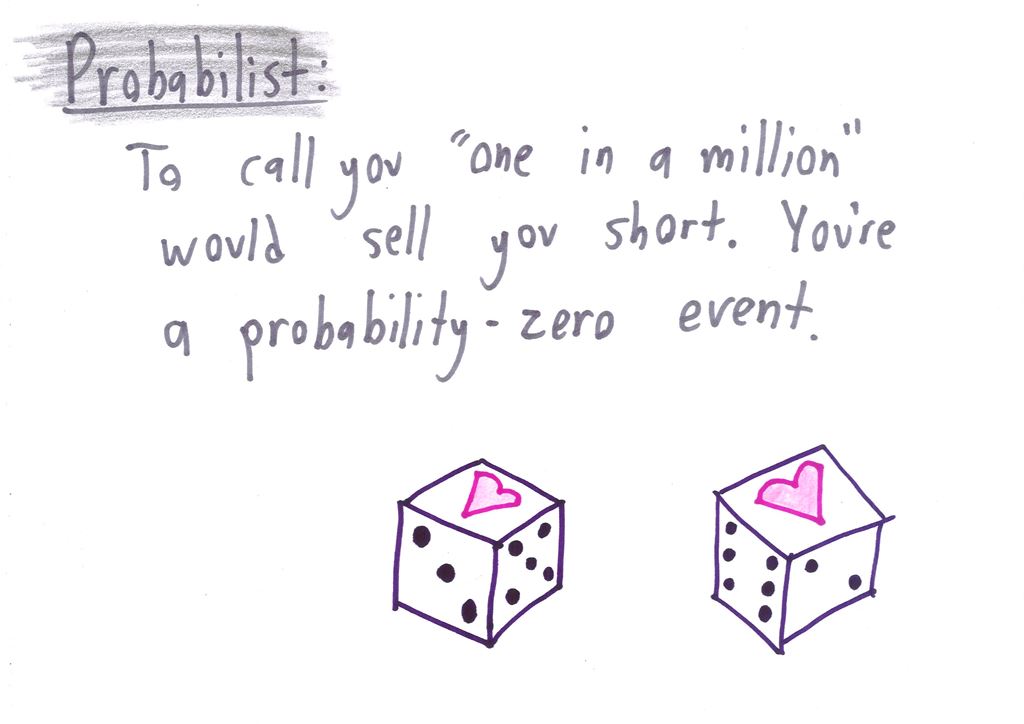 Probabilist:
To call you "one in a million"
would sell you short. You're
a probability-zero event.